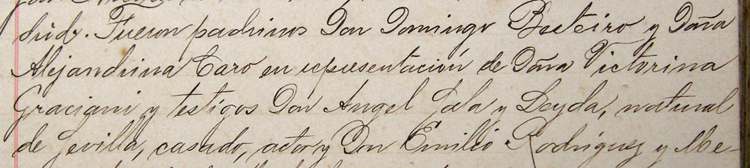 Fueron padrinos Don Domingo Basteiro y Doña
Alejandrina Caro en representación de Doña Victorina
Graciani y testigos Don Angel Lola y Leyda, natural
de Sevilla, casado, actor y Don Emilio Rodríguez y Me-